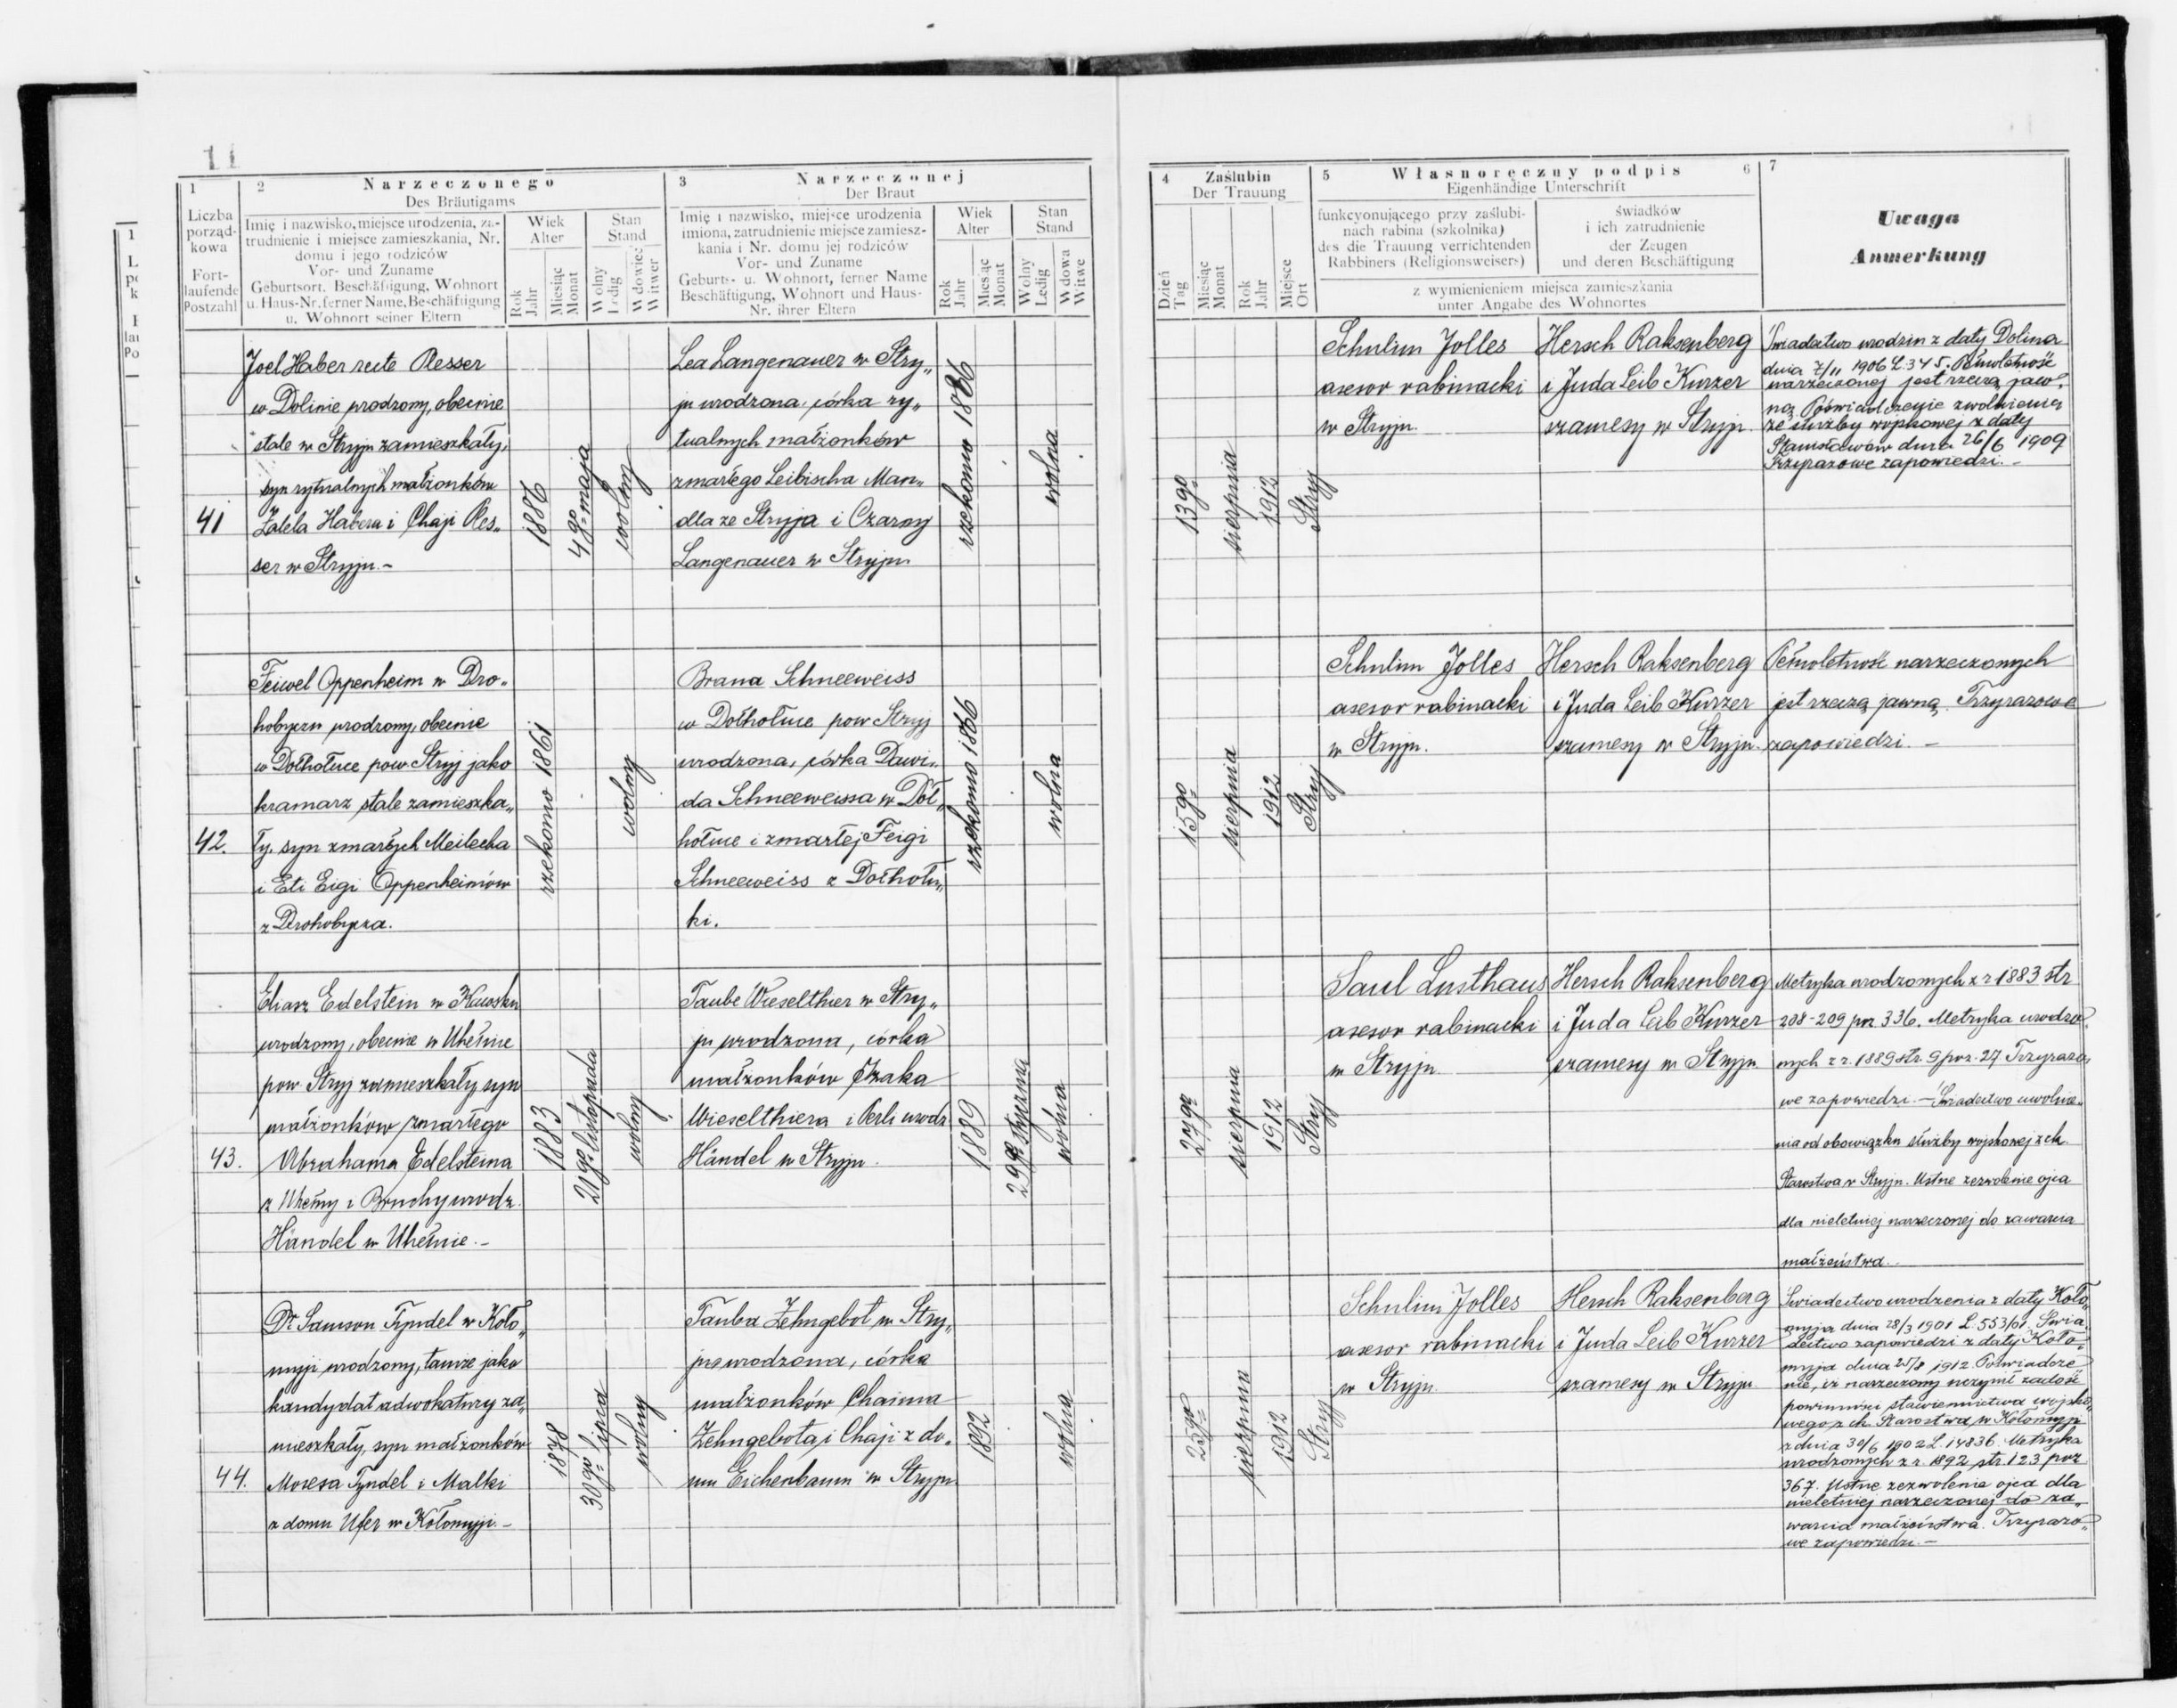 11
1
2
Narzeczonego
Des Bräutigams
3
Narzeczonej
Der Braut
Liczba
porząd-
kowa
Fort-
laufende
Postzahl
Imię i nazwisko, miejsce urodzenia, za-
trudnienie i miejsce zamieszkania, Nr.
domu i jego rodziców
Vor- und Zuname
Geburtsort, Beschäftigung, Wohnort
u. Haus-Nr. ferner Name, Beschäftigung
u. Wohnort seiner Eltern
Wiek
Alter
Rok
Jahr
Miesiąc
Monat
Stan
Stand
Wolny
Ledig
Wdowiec
Witwer
Imię i nazwisko, miejsce urodzenia
imiona, zatrudnienie miejsce zamiesz-
kania i Nr. domu jej rodziców
Vor- und Zuname
Geburts- u. Wohnort, ferner Name
Beschäftigung, Wohnort und Haus-
Nr. ihrer Eltern
Wiek
Alter
Rok
Jahr
Miesiąc
Monat
Stan
Stand
Wolny
Ledig
Wdowa
Witwe
4
Zaślubin
Der Trauung
Dzień
Tag
Miesiąc
Monat
Rok
Jahr
Miejsce
Ort
5
Własnoręczny podpis
6
Eigenhändige Unterschrift
funkcyonującego przy zaślubi-
nach rabina (szkolnika)
des die Trauung verrichtenden
Rabbiners (Religionsweisers)
świadków
i ich zatrudnienie
der Zeugen
und deren Beschäftigung
z wymienieniem miejsca zamieszkania
unter Angabe des Wohnortes
7
Uwaga
Anmerkung
41
Joel Haber recte Resser
w Dolinie urodzony, obecnie
stale w Stryju zamieszkały,
syn rytualnych małżonków
Habera i Chaji Res„
ser w Stryju.-
1886
4go maja
wolny
Lea Langenauer w Stry„
ju urodzona, córka ry„
tualnych małżonków
zmarłego Leibischa Man„
dla ze Stryja i Czarny
Langenauer w Stryju
rzekomo 1886
wolna
13go
sierpnia
1912
Stryj
Schulim Jolles
asesor rabinacki
w Stryju
Hersch Raksenberg
i Juda Leib Kurzer
szamesy w Stryju.
Świadectwo urodzin z daty Dolina
dnia 7/11 1906 L.345. Pełnoletność
narzeczonej jest rzeczą jaw„
ną. Poświadczenie zwolnienia
ze służby wojskowej z daty
Stanisławów dnia 26/6 1909
Trzyrazowe zapowiedzi.-
42.
Feiwel Oppenheim w Dro„
hobyczu urodzony, obecnie
w Dołhołuce pow Stryj jako
kramarz stale zamieszka„
ły, syn zmarłych Meilecha
i Eti Eigi Oppenheimów
z Drohobycza.
rzekomo 1861
wolny
Brana Schneeweiss
w Dołhołuce pow Stryj
urodzona, córka Dawi„
da Schneeweissa w Doł„
hołuce i zmarłej Feigi
Schneeweiss z Dołhołu„
ki.
rzekomo 1866
wolna
15go
sierpnia
1912
Stryj
Schulim Jolles
asesor rabinacki
w Stryju.
Hersch Raksenberg
i Juda Leib Kurzer
szamesy w Stryju.
Pełnoletność narzeczonych
jest rzeczą jawną. Trzyrazowe
zapowiedzi.-
43.
Eliasz Edelstein w Kawsku
urodzony, obecnie w Uhełnie
pow Stryj zamieszkały, syn
małżonków zmarłego
Abrahama Edelsteina
z Uhełny i Bruchy urodz.
Händel w Uhełnie.-
1883
21go listopada
wolny
Taube Wieselthier w Stry„
ju urodzona, córka
małżonków Izaka
Wieselthiera i Perli urodz
Händel w Stryju.
1889
29go stycznia
wolna
27go
sierpnia
1912
Stryj
Saul Lusthaus
asesor rabinacki
w Stryju
Hersch Raksenberg
i Juda Leib Kurzer
szamesy w Stryju
Metryka urodzonych z r 1883 str
208-209 poz 336. Metryka urodzo„
nych z r. 1889 str. 9 poz. 27 Trzyrazo„
we zapowiedzi.- Świadectwo uwolnie„
nia od obowiązku służby wojskowej z ck
Starostwa w Stryju. Ustne zezwolenie ojca
dla nieletniej narzeczonej do zawarcia
małżeństwa.
44.
Dr Samson Tyndel w Koło„
myji urodzony, tamże jako
kandydat adwokatury za„
mieszkały, syn małżonków
Mozesa Tyndel i Malki
z domu Ufer w Kołomyji.-
1878
30go lipca
wolny
Tauba Zehngebot w Stry„
ju urodzona, córka
małżonków Chaima
Zehngebota i Chaji z do„
mu Eichenbaum w Stryju
1892
wolna
25go
sierpnia
1912
Stryj
Schulim Jolles
asesor rabinacki
w Stryju
Hersch Raksenberg
i Juda Leib Kurzer
szamesy w Stryju
Świadectwo urodzenia z daty Koło„
myja dnia 28/3 1901 L 553/01. Świa„
dectwo zapowiedzi z daty Koło„
myja dnia 25/8 1912. Poświadcze„
nie, iż narzeczony uczynił zadość
powinności stawiennictwa wojsko„
wego z ck Starostwa w Kołomyji
z dnia 30/6 1902 L. 14836. Metryka
urodzonych z r. 1892 str. 123 poz
367. Ustne zezwolenie ojca dla
nieletniej narzeczonej do za„
warcia małżeństwa. Trzyrazo„
we zapowiedzi.-